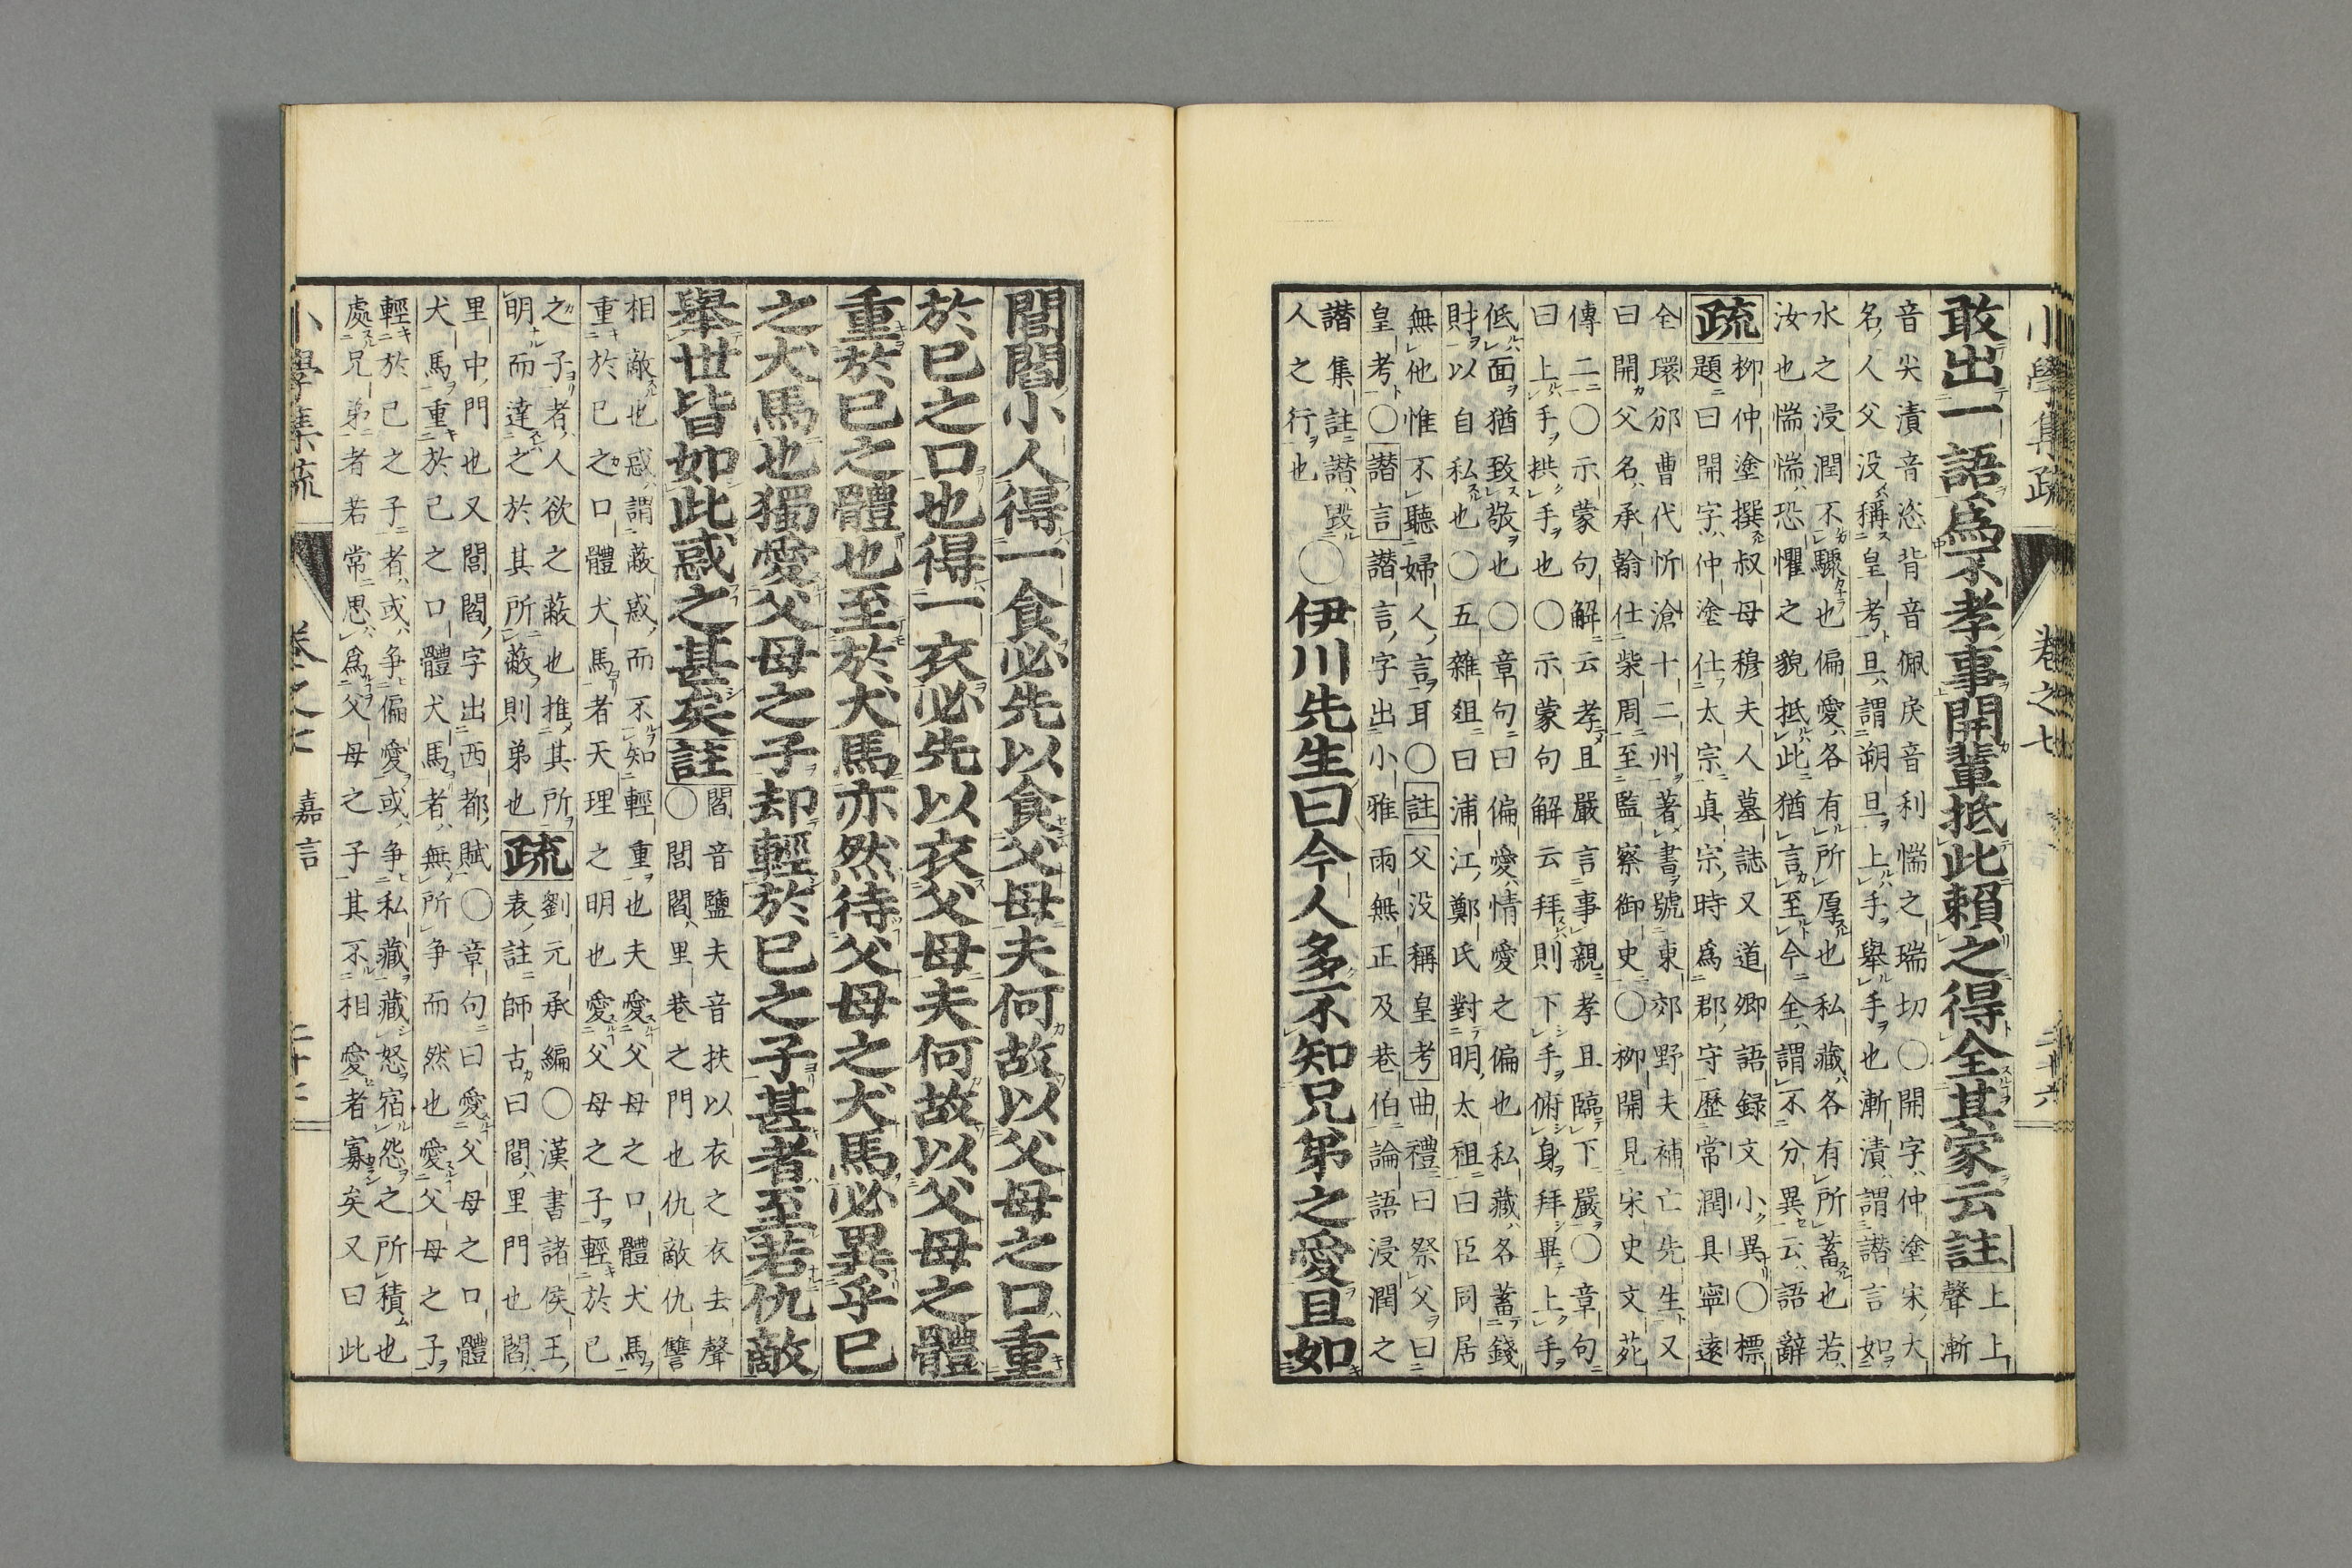 小學集疏 卷之七 二十六
敢出一語爲不孝事開輩抵此賴之得全其家云註上上
聲漸
音尖漬音恣背音佩戾音利惴之瑞切〇開字仲塗宋大
名人父没稱皇考旦謂朔旦上手舉手也漸漬謂譖言如
水之浸潤不驟也偏愛各有所厚也私藏各有所蓄也若
汝也惴惴恐懼之貌抵此猶言至今全謂不分異云語辭
疏
柳仲塗撰叔母穆夫人墓誌又道卿語録文小異〇標
題曰開字仲塗仕太宗眞宗時爲郡守歷常潤具寧遠
全環邠曹代忻滄十二州著書號東郊野夫補亡先生又
曰開父名承翰仕柴周至監察御史〇柳開見宋史文苑
傳二〇示蒙句解云孝且嚴言事親孝且臨下嚴〇章句
曰上手拱手也〇示蒙句解云拜則下手俯身拜畢上手
低面猶致敬也〇章句曰偏愛情愛之偏也私藏各蓄錢
財以自私也〇五雜俎曰浦江鄭氏對明太祖曰臣同居
無他惟不聽婦人言耳〇註父没稱皇考曲禮曰祭父曰
皇考〇譖言譖言字出小雅雨無正及巷伯論語浸潤之
譖集註譖毀
人之行也〇伊川先生曰今人多不知兄弟之愛且如
閭閻小人得一食必先以食父母夫何故以父母之口重
於己之口也得一衣必先以衣父母夫何故以父母之體
重於己之體也至於犬馬亦然待父母之犬馬必異乎己
之犬馬也獨愛父母之子却輕於己之子甚者至若仇敵
舉世皆如此惑之甚矣註閻音鹽夫音扶以衣之衣去聲
〇閭閻里巷之門也仇敵仇讐
相敵也惑謂蔽惑而不知輕重也夫愛父母之口體犬馬
重於己之口體犬馬者天理之明也愛父母之子輕於己
之子者人欲之蔽也推其所
明而達之於其所蔽則弟也疏劉元承編〇漢書諸侯王
表註師古曰閭里門也閻
里中門也又閭閻字出西都賦〇章句曰愛父母之口體
犬馬重於己之口體犬馬者無所争而然也愛父母之子
輕於己之子者或争偏愛或争私藏藏怒宿怨之所積也
處兄弟者若常思爲父母之子其不相愛者寡矣又曰此
小學集疏 卷之七 嘉言